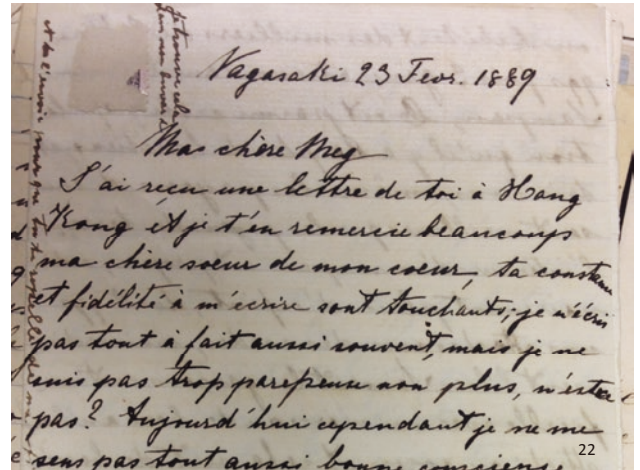 Nagasaki 23 Fevr. 1889
Ma chère Meg
J'ai reçu une lettre de toi à Hong
Kong et je t'en remercie beaucoup
ma chère soeur de mon coeur, ta
et fidélité à m'écrire sont touchants; je n'écris
pas tout à fait aussi souvent, mais je ne
suis pas trop non plus, n'est ce
pas? Aujourd'hui cependant je ne me
sens pas tout aussi bonne
Je trouve cela
je te l'envoie pour que tu te
22